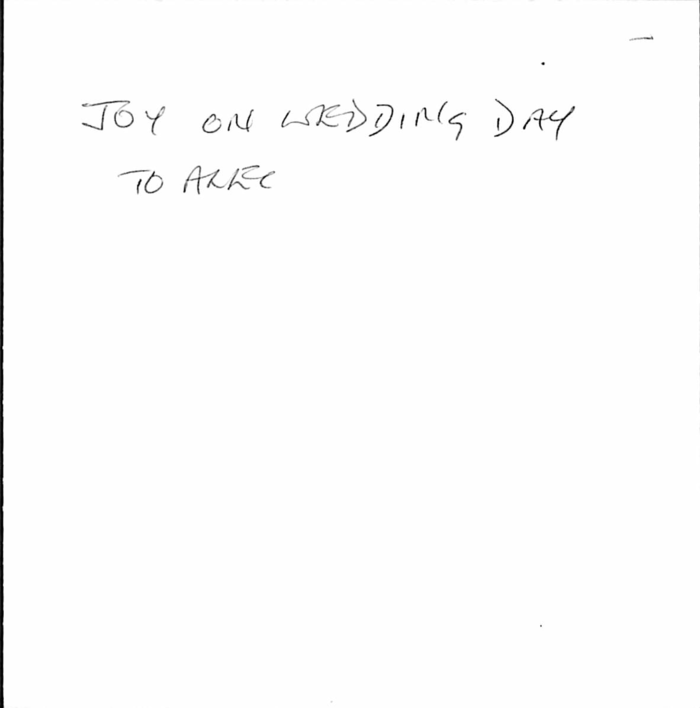 JOY ON WEDDING DAY
TO ALEC